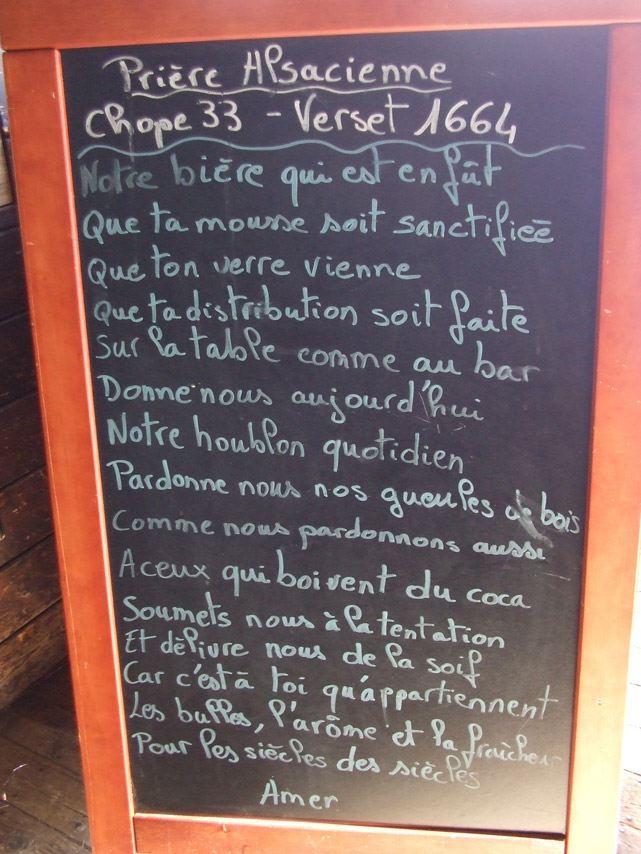 Prière Alsacienne
Chope 33 - Verset 1664
Notre bière qui est en fût
Que ta mousse soit sanctifieë
Que ton verre vienne
Que ta distribution soit faite
Sur la table comme au bar
Donne nous aujourd'hui
Notre houblon quotidien
Pardonne nous nos gueules de bois
Comme nous pardonnons aussi
A ceux qui boivent du coca
Soumets nous à la tentation
Et délivre nous de la soif
Car c'est à toi qu'appartiennent
Les bulles, l'arôme et la fraîcheur
Pour les siècles des siècles
Amer